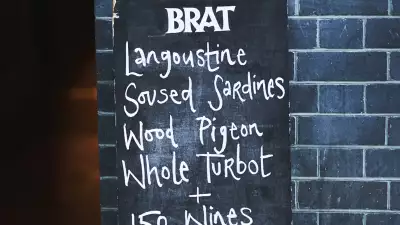 BRAT
Langoustine
Soused Sardines
Wood Pigeon
Whole Turbot
+
150 Wines